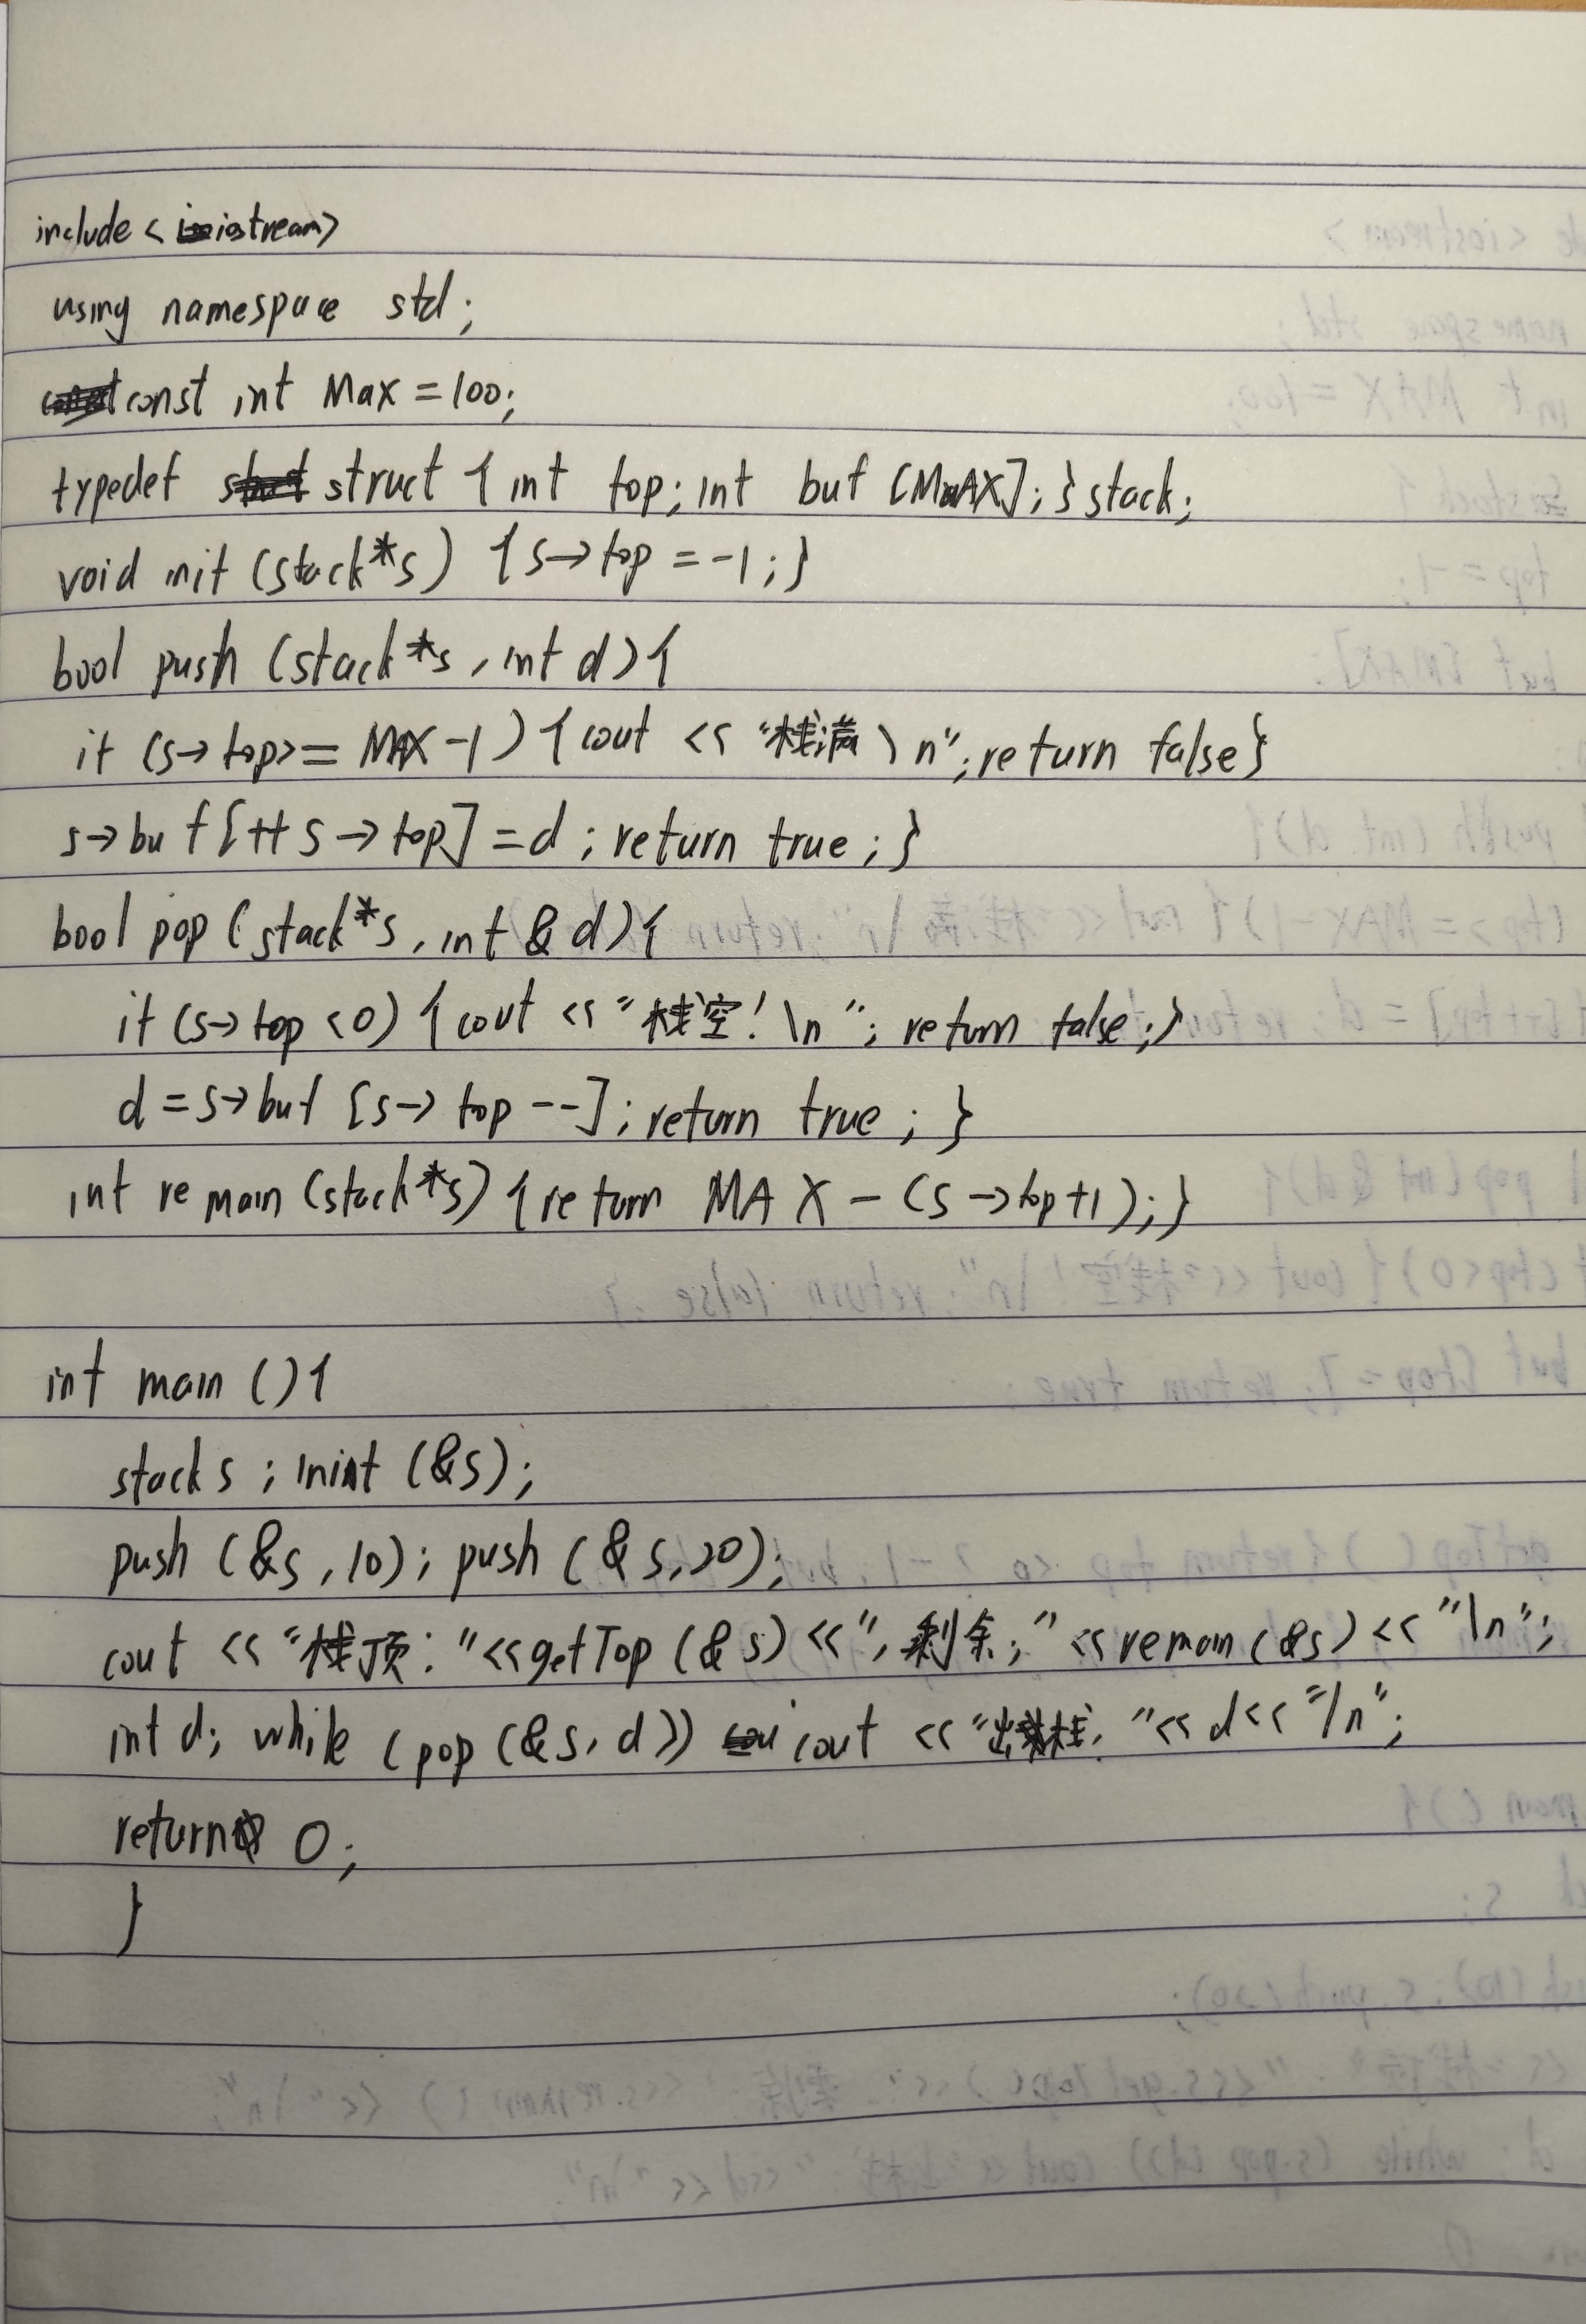 include <iostream>
using namespace std;
const int Max = 100;
typedef struct { int top; int buf [MAX]; } stack;
void init (stack*s) { s→top = -1; }
bool push (stack*s, int d) {
if (s→top >= MAX-1) { cout << "栈满\n"; return false}
s→buf[++s→top] = d; return true; }
bool pop (stack*s, int & d) {
if (s→top <0) { cout << "栈空! \n"; return false; }
d = s→buf [s→top --]; return true; }
int remain (stack*s) { return MAX - (s→top+1); }
int main () {
stack s; init (&s);
push (&s, 10); push (&s, 20);
cout << "栈顶: "<< getTop (&s) << ", 剩余; " << remain (&s) << "\n";
int d; while (pop (&s, d)) cout << "出栈: "<< d << "/n";
return 0;
}